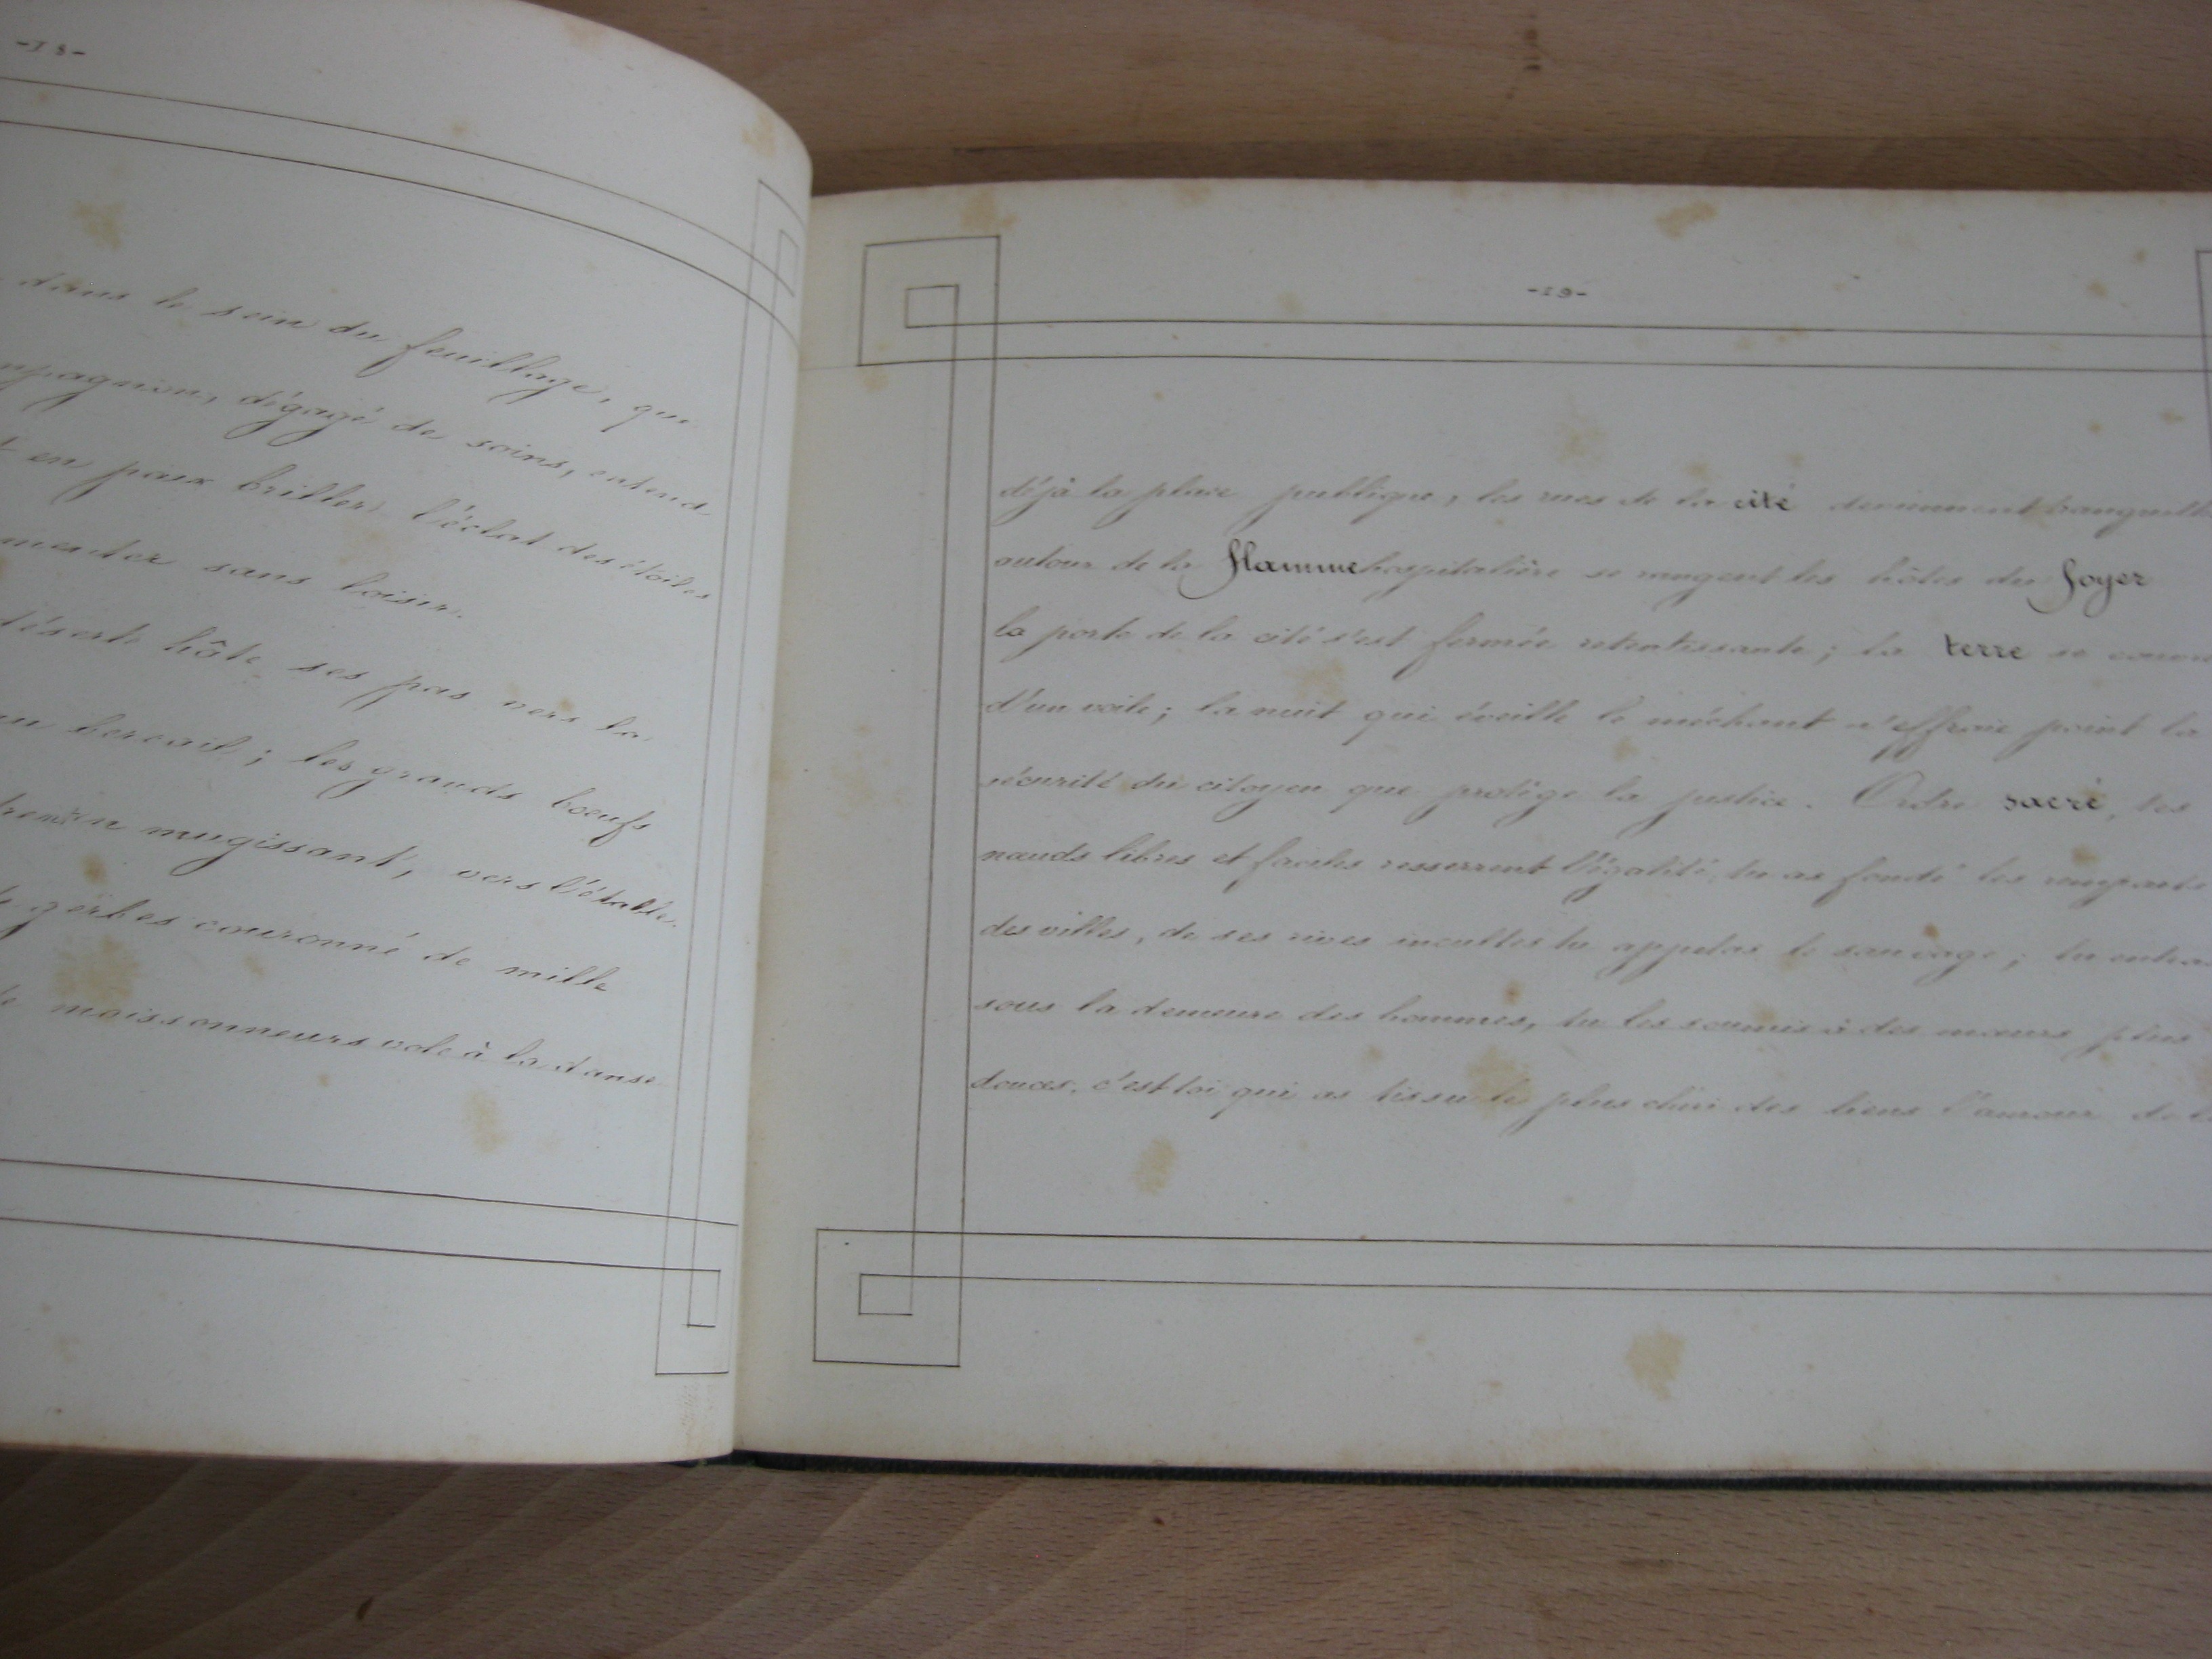 -18-
dans le sein du feuillage, que
mpagnon, dégagé de soins, entend
t en paix briller l'éclat des étoiles
menter sans loisir.
déserte hâte ses pas vers la
u bercail; les grands bœufs
mugissant, vers l'étable.
gerbes couronné de mille
moissonneurs vole à la danse
-19-
déjà la place publique, les rues de la cité deviennent tranquilles
autour de la flamme hospitalière se rangent les hôtes du foyer
la porte de la cité s'est fermée retentissante; la terre se couvre
d'un voile; la nuit qui éveille le méchant n'effraie point la
sécurité du citoyen que protège la justice. Ordre sacré, tes
nœuds libres et faciles resserrent l'égalité, tu as fondé les remparts
des villes, de ses rives incultes tu appelas le sauvage; tu entras
sous la demeure des hommes, tu les soumis à des mœurs plus
douces, c'est toi qui as tissu le plus cher des liens l'amour de la